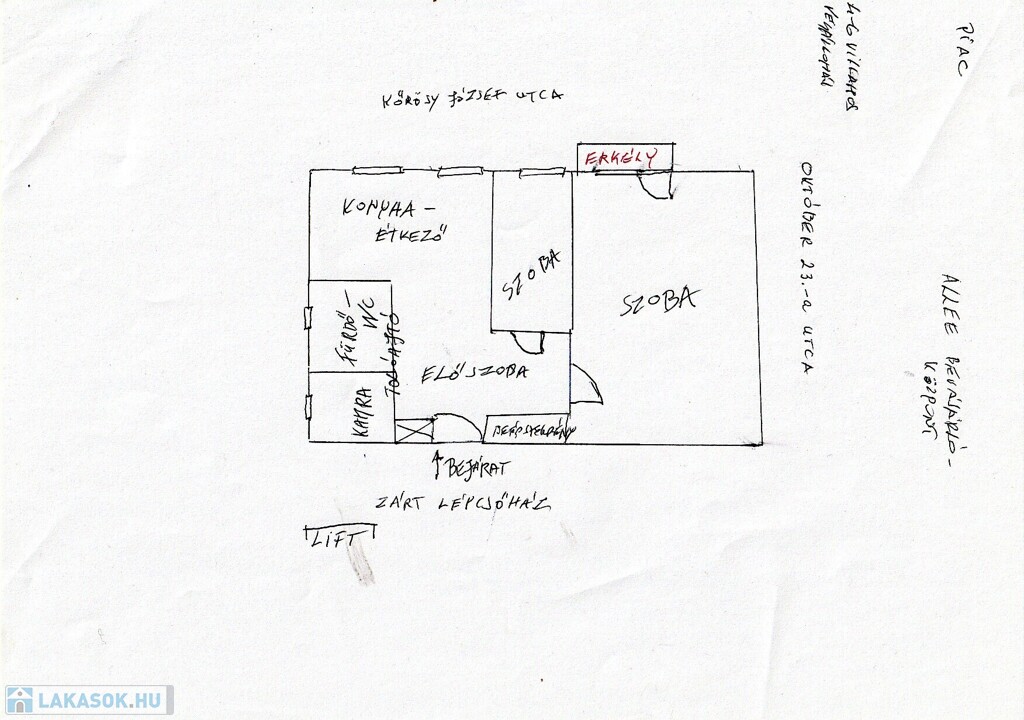 4-6 VILLAMOS
VÉGÁLLOMÁS
PIAC
KŐRÖSY JÓZSEF UTCA
ERKÉLY
KONYHA -
ÉTKEZŐ
SZOBA
SZOBA
OKTÓBER 23.-a UTCA
ALLEE BEVÁSÁRLÓ-
KÖZPONT
FÜRDŐ-
WC
TOLÓAJTÓ
ELŐSZOBA
KAMRA
BEÉPSZEKRÉNY
BEJÁRAT
ZÁRT LÉPCSŐHÁZ
LIFT
LAKASOK.HU